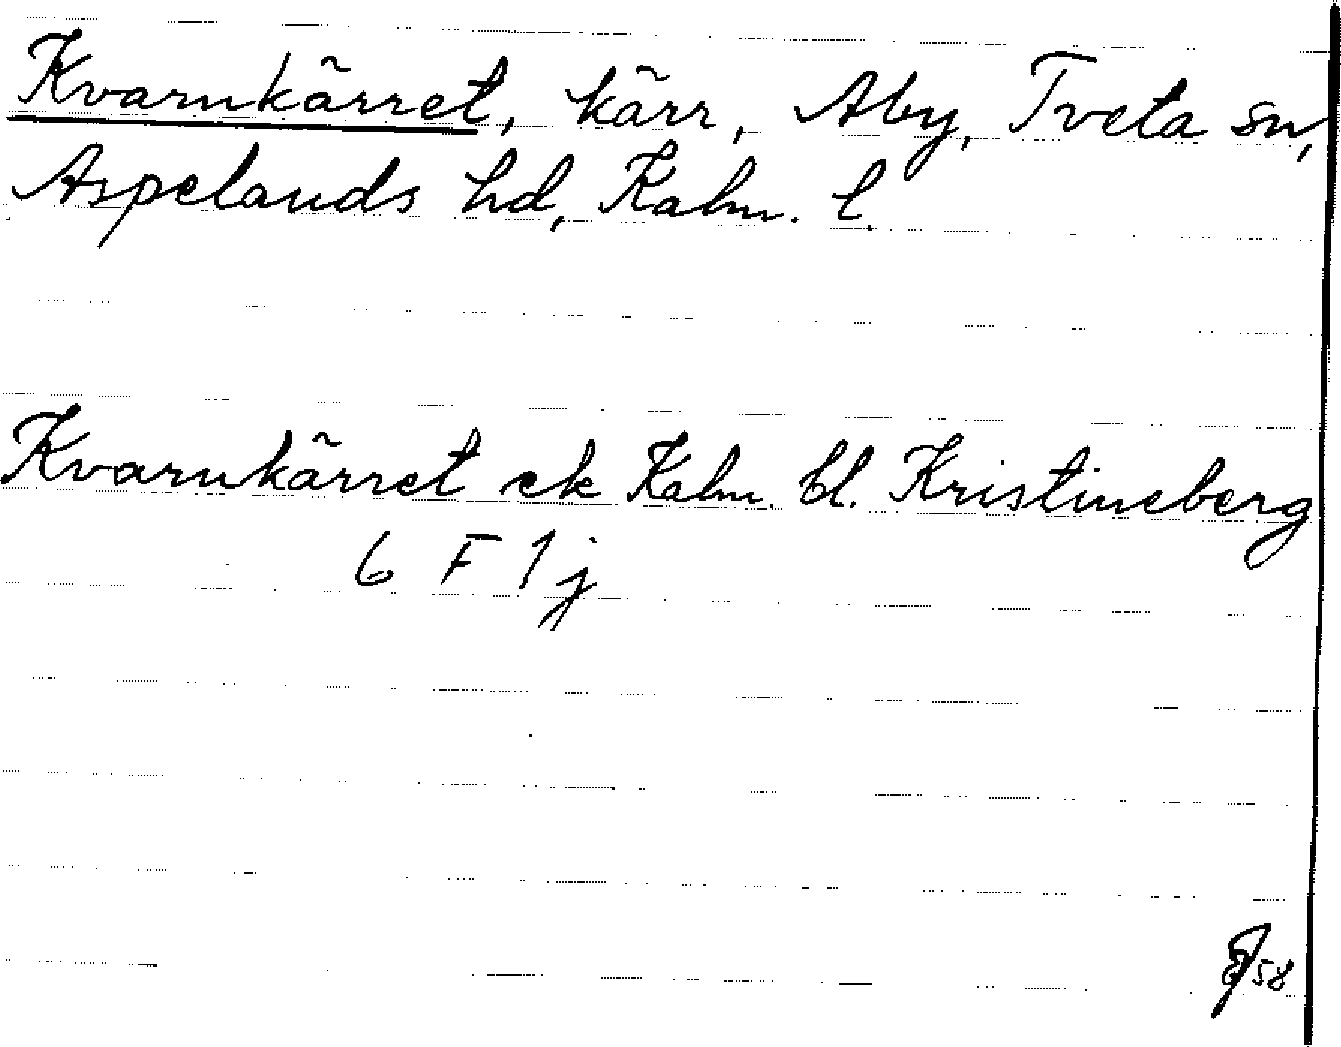 Kvarnkärret, kärr, Åby, Tveta sn,
Aspelands hd, Kalm. l.
Kvarnkärret ek Kalm. bl. Kristineberg
6 F 1 j
58